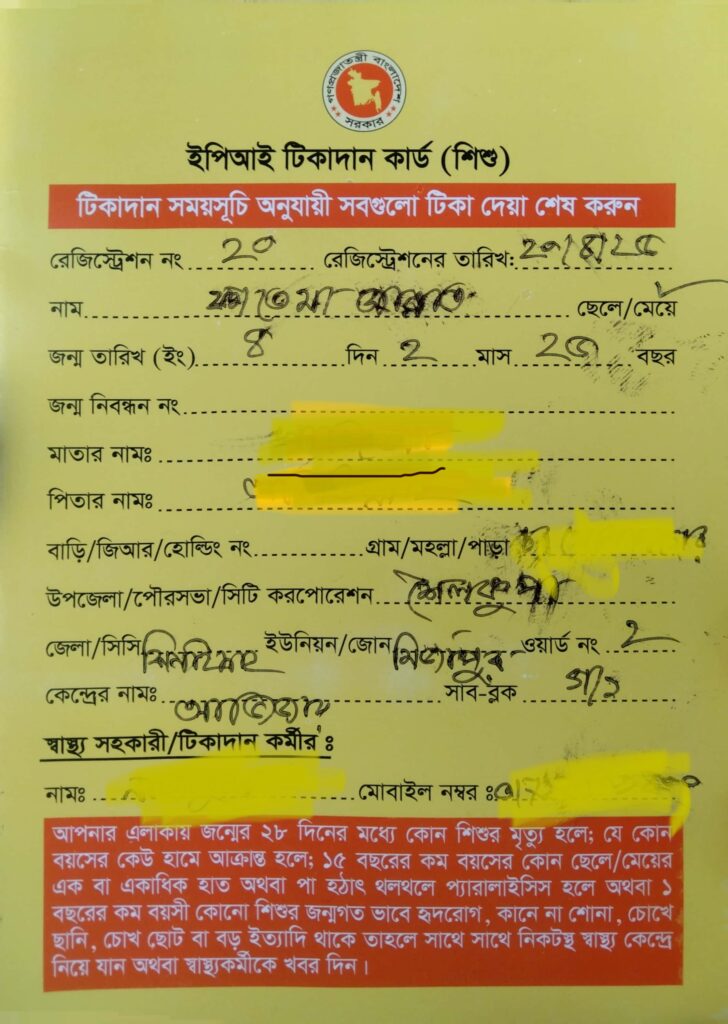 গণপ্রজাতন্ত্রী বাংলাদেশ সরকার
ইপিআই টিকাদান কার্ড (শিশু)
টিকাদান সময়সূচি অনুযায়ী সবগুলো টিকা দেয়া শেষ করুন
রেজিস্ট্রেশন নং ২০ রেজিস্ট্রেশনের তারিখ: ২০/৪/২৫
নাম ফাতেমা জান্নাত ছেলে/মেয়ে
জন্ম তারিখ (ইং) ৪ দিন ২ মাস ২৫ বছর
জন্ম নিবন্ধন নং
মাতার নামঃ
পিতার নামঃ
বাড়ি/জিআর/হোল্ডিং নং গ্রাম/মহল্লা/পাড়া
উপজেলা/পৌরসভা/সিটি করপোরেশন শৈলকুপা
জেলা/সিসি ঝিনাইদহ ইউনিয়ন/জোন মির্জাপুর ওয়ার্ড নং ২
কেন্দ্রের নামঃ সাব-ব্লক
স্বাস্থ্য সহকারী/টিকাদান কর্মীর ঃ
নামঃ মোবাইল নম্বর ঃ
আপনার এলাকায় জন্মের ২৮ দিনের মধ্যে কোন শিশুর মৃত্যু হলে; যে কোন
বয়সের কেউ হামে আক্রান্ত হলে; ১৫ বছরের কম বয়সের কোন ছেলে/মেয়ের
এক বা একাধিক হাত অথবা পা হঠাৎ থলথলে প্যারালাইসিস হলে অথবা ১
বছরের কম বয়সী কোনো শিশুর জন্মগত ভাবে হৃদরোগ, কানে না শোনা, চোখে
ছানি, চোখ ছোট বা বড় ইত্যাদি থাকে তাহলে সাথে সাথে নিকটস্থ স্বাস্থ্য কেন্দ্রে
নিয়ে যান অথবা স্বাস্থ্যকর্মীকে খবর দিন।